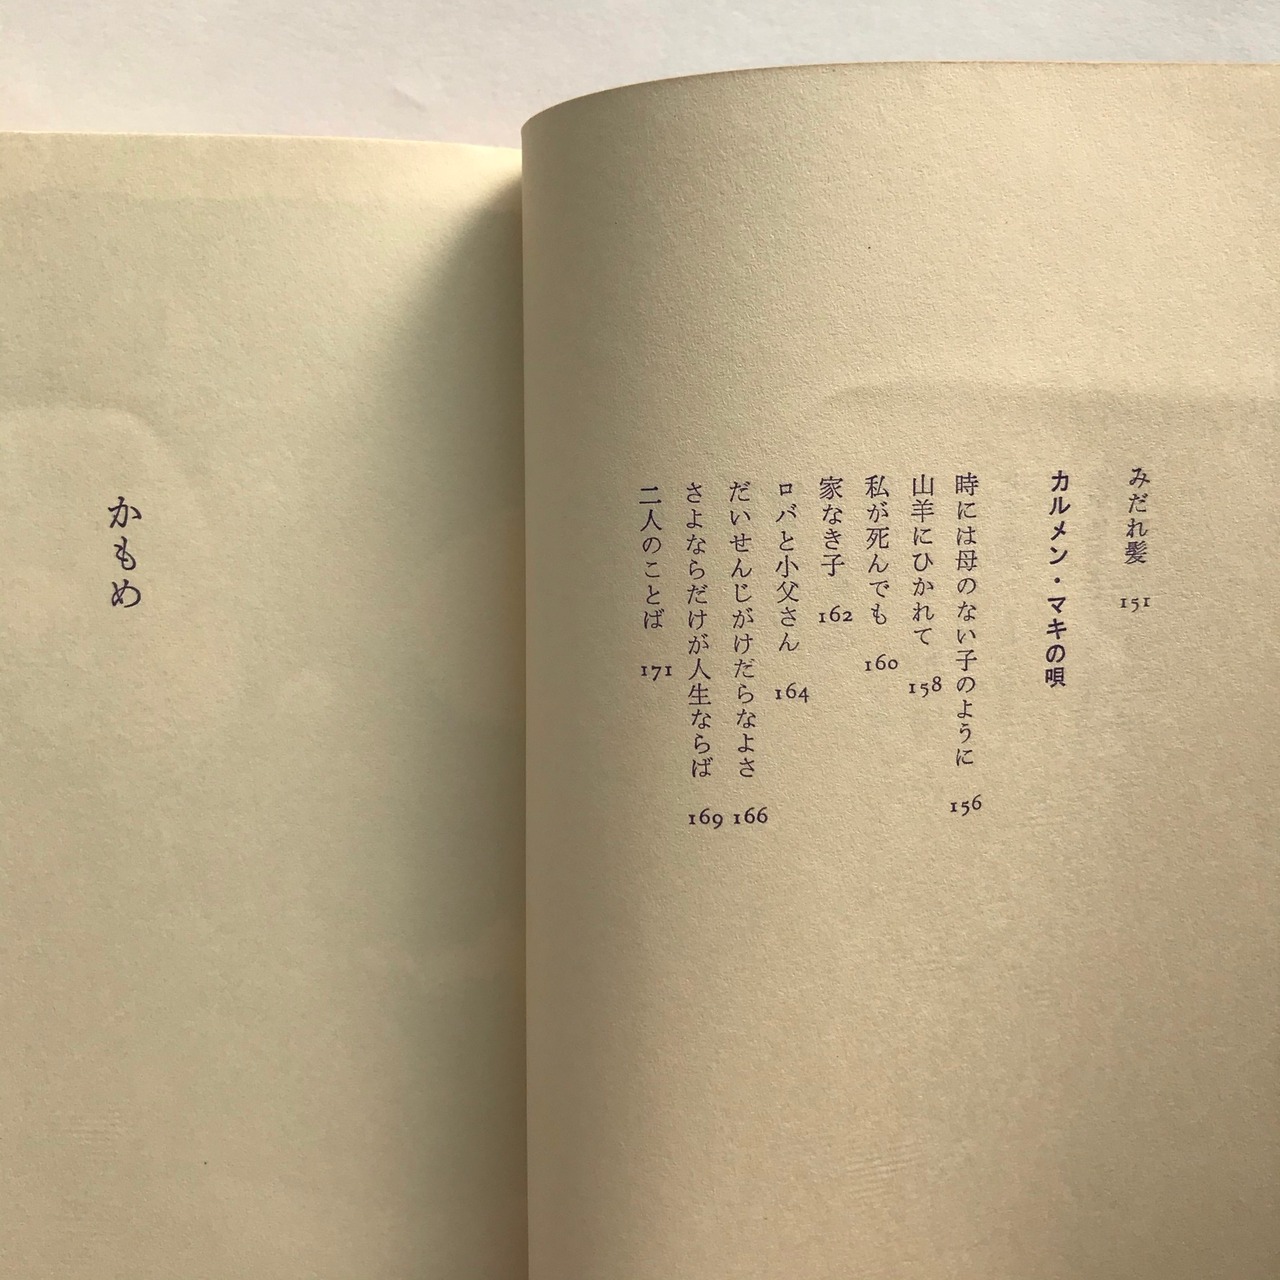 みだれ髪 151
カルメン・マキの唄
時には母のない子のように 156
山羊にひかれて 158
私が死んでも 160
家なき子 162
ロバと小父さん 164
だいせんじがけだらなよさ 166
さよならだけが人生ならば 169
二人のことば 171
かもめ